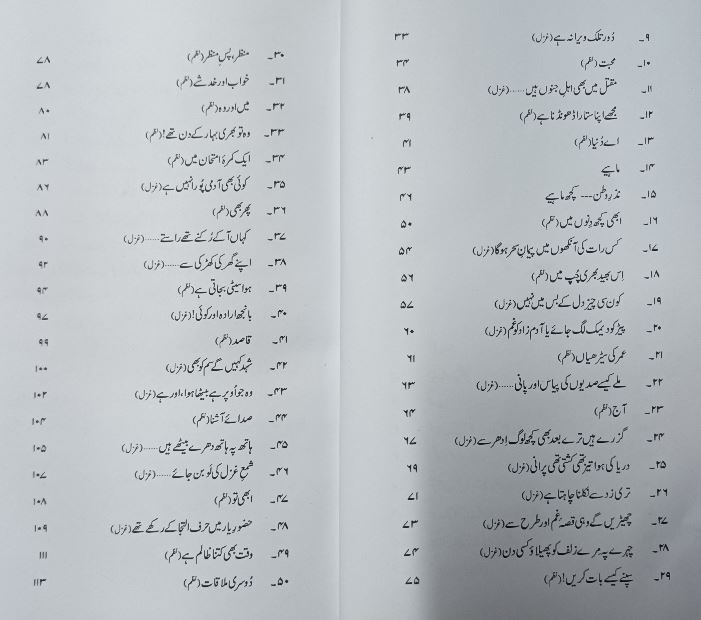 ۹۔ دُور تلک ویرانہ ہے (غزل) ۳۳
۱۰۔ محبت (نظم) ۳۴
۱۱۔ مقتل میں بھی اہلِ جنوں ہیں...... (غزل) ۳۸
۱۲۔ مجھے اپنا ستارا ڈھونڈنا ہے (نظم) ۳۹
۱۳۔ اے دُنیا (نظم) ۴۱
۱۴۔ ماہیے ۴۳
۱۵۔ نذرِ وطن --- کچھ ماہیے ۴۶
۱۶۔ ابھی کچھ دِنوں میں (نظم) ۵۰
۱۷۔ کس رات کی آنکھوں میں پیمانِ سحر ہوگا (غزل) ۵۴
۱۸۔ اِس بھید بھری چُپ میں (نظم) ۵۶
۱۹۔ کون سی چیز دل کے بس میں نہیں (غزل) ۵۷
۲۰۔ پیڑ کو دیمک لگ جائے یا آدم زاد کو غم (غزل) ۶۰
۲۱۔ عمر کی سیڑھیاں (نظم) ۶۱
۲۲۔ ملے کیسے صدیوں کی پیاس اور پانی...... (غزل) ۶۳
۲۳۔ آج (نظم) ۶۴
۲۴۔ گزرے ہیں ترے بعد بھی کچھ لوگ اِدھر سے (غزل) ۶۷
۲۵۔ دریا کی ہوا تیز تھی کشتی تھی پرانی (غزل) ۶۹
۲۶۔ تری زد سے نکلنا چاہتا ہے (غزل) ۷۱
۲۷۔ چھیڑیں گے وہی قصۂ غم اور طرح سے (غزل) ۷۳
۲۸۔ چہرے پہ مرے زلف کو پھیلاؤ کسی دن (غزل) ۷۴
۲۹۔ سپنے کیسے بات کریں! (نظم) ۷۵
۳۰۔ منظر، پسِ منظر (نظم) ۷۸
۳۱۔ خواب اور خدشے (نظم) ۷۸
۳۲۔ میں اور وہ (نظم) ۸۰
۳۳۔ وہ تو بھری بہار کے دن تھے! (نظم) ۸۱
۳۴۔ ایک کمرۂ امتحان میں (نظم) ۸۳
۳۵۔ کوئی بھی آدمی پُورا نہیں ہے (غزل) ۸۶
۳۶۔ پھر بھی (نظم) ۸۸
۳۷۔ کہاں آ کے رُکنے تھے راستے...... (غزل) ۹۰
۳۸۔ اپنے گھر کی کھڑکی سے...... (غزل) ۹۲
۳۹۔ ہوا سیٹی بجاتی ہے (نظم) ۹۴
۴۰۔ بانجھ ارادہ اور کوئی! (غزل) ۹۷
۴۱۔ قاصد (نظم) ۹۹
۴۲۔ شہد کہیں گے سم کو بھی (غزل) ۱۰۰
۴۳۔ وہ جو اُوپر ہے بیٹھا ہوا، اور ہے (غزل) ۱۰۲
۴۴۔ صدائے آشنا (نظم) ۱۰۴
۴۵۔ ہاتھ پہ ہاتھ دھرے بیٹھے ہیں...... (غزل) ۱۰۵
۴۶۔ شمعِ غزل کی لَو بن جائے...... (غزل) ۱۰۷
۴۷۔ ابھی تو (نظم) ۱۰۸
۴۸۔ حضورِ یار میں حرف التجا کے رکھے تھے (غزل) ۱۰۹
۴۹۔ وقت بھی کتنا ظالم ہے (نظم) ۱۱۱
۵۰۔ دُوسری ملاقات (نظم) ۱۱۳